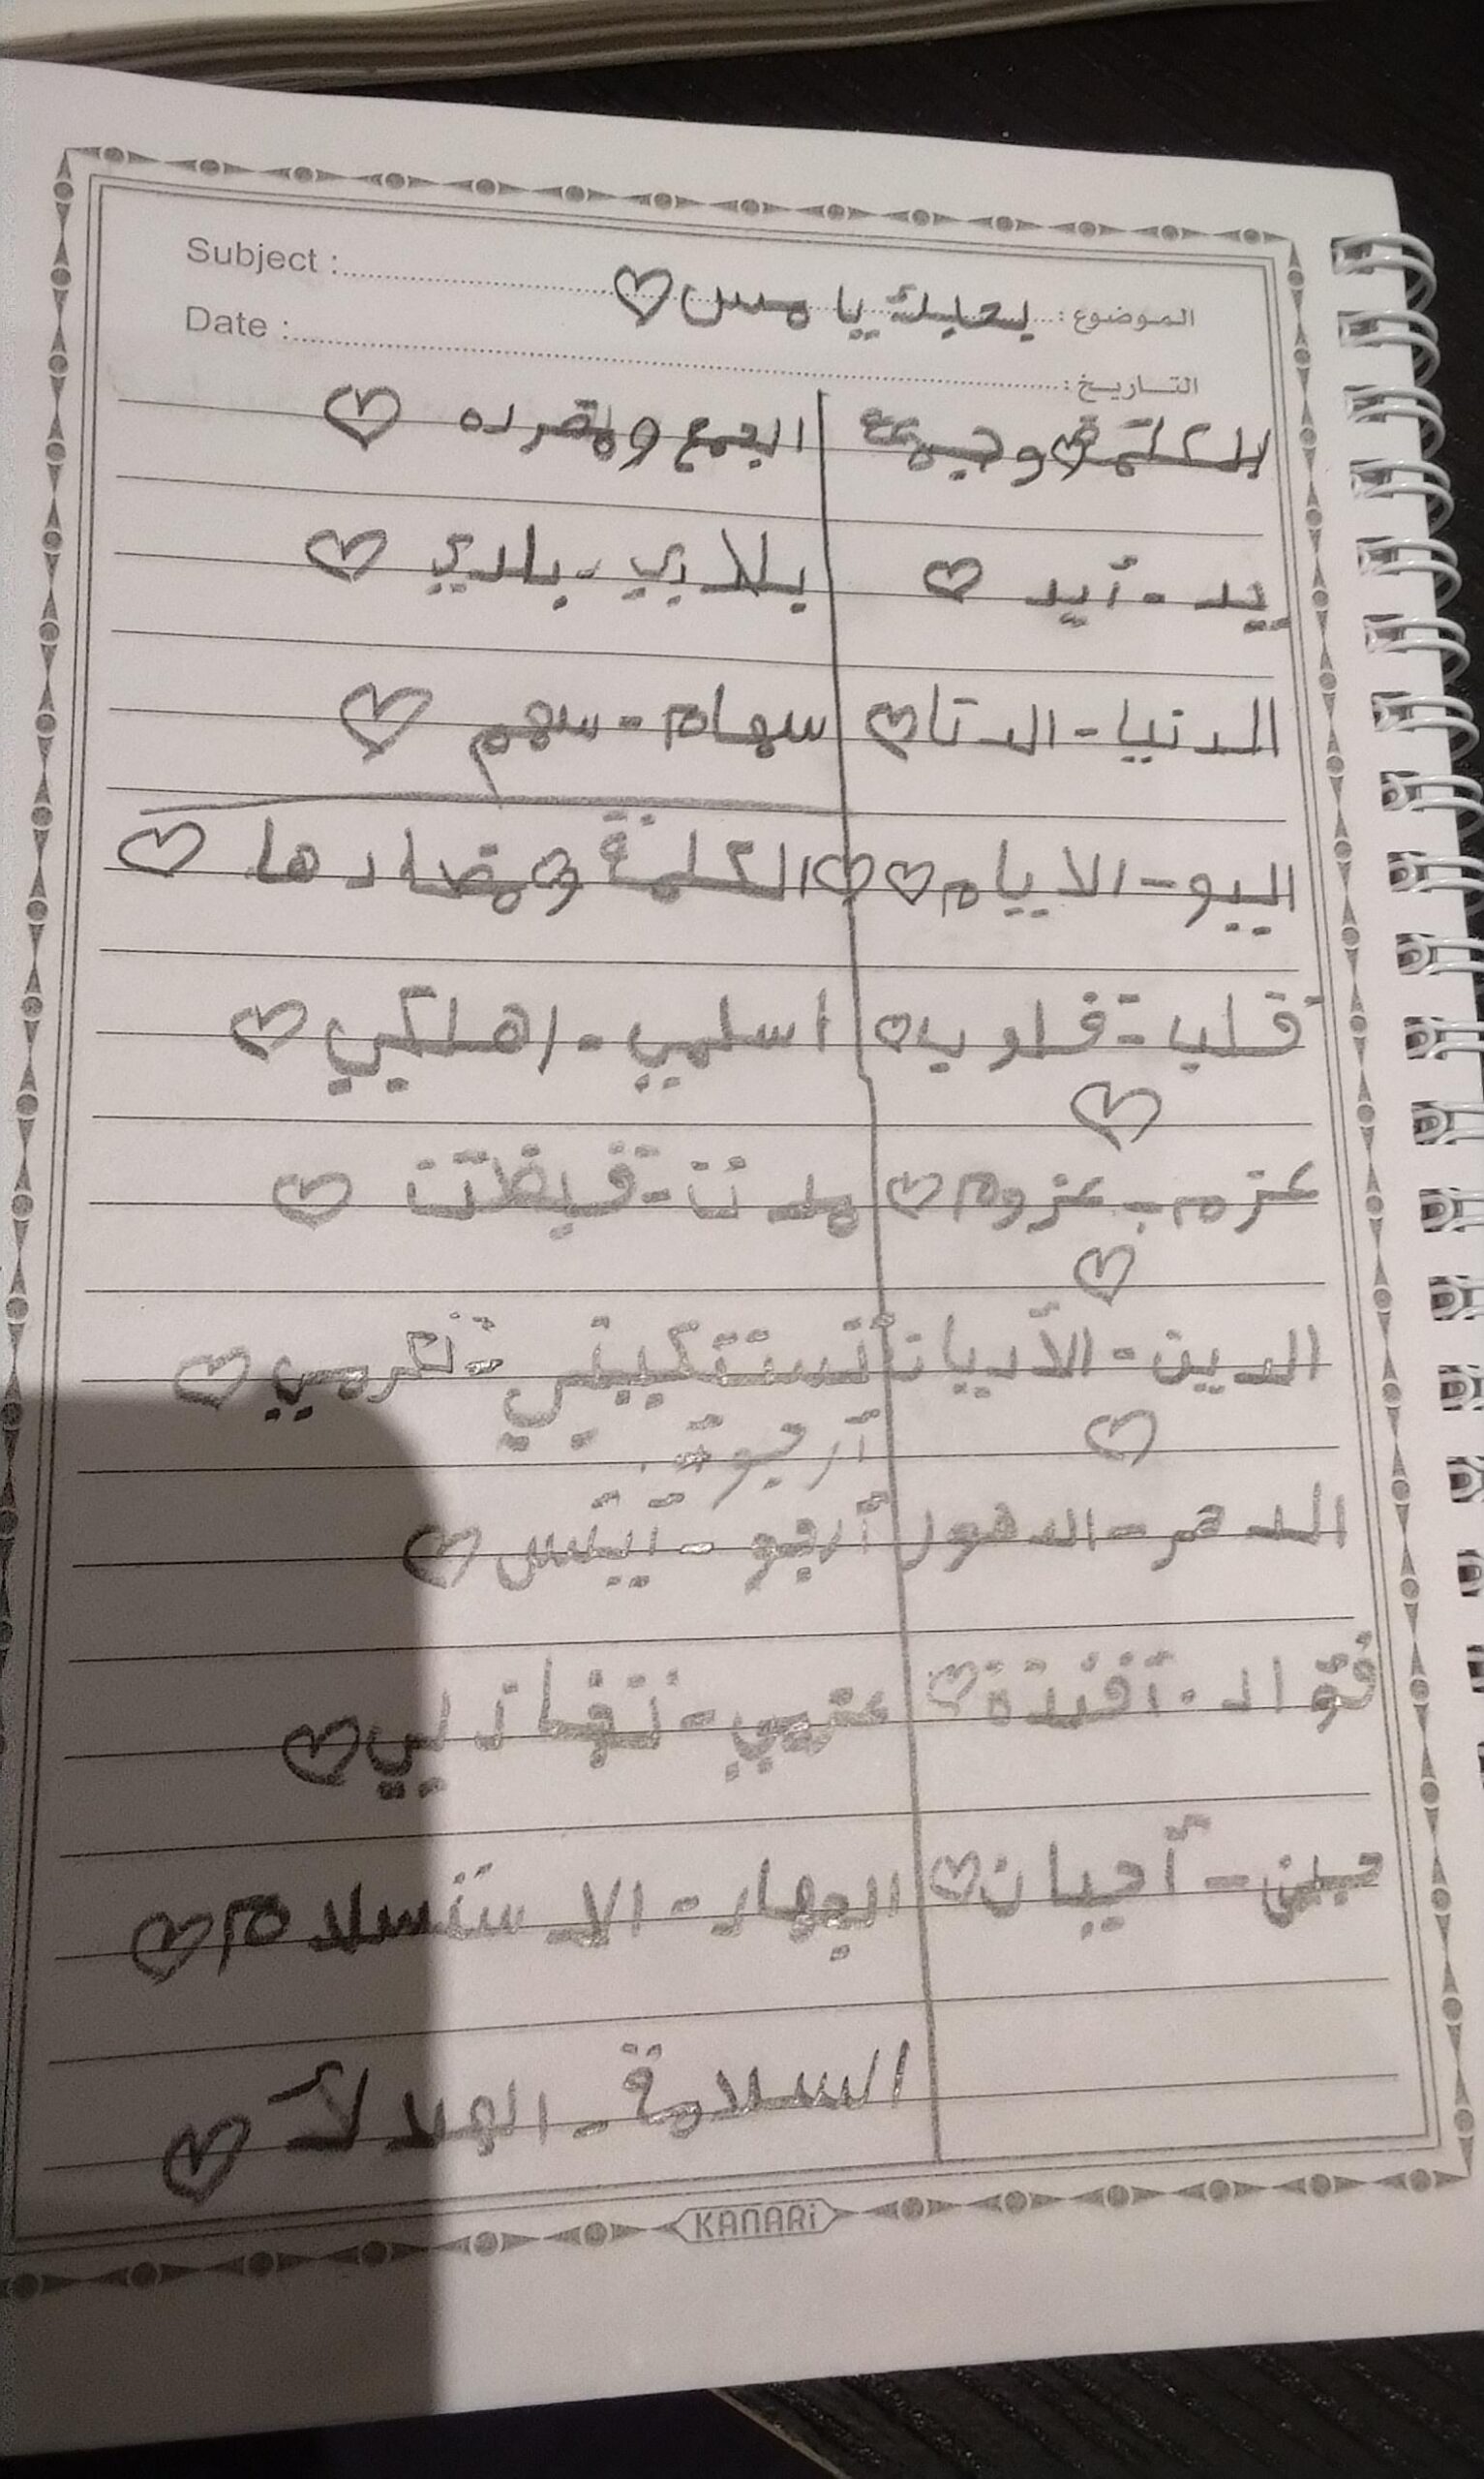 Subject :
الموضوع : بحبك يا مس
Date :
التاريخ :
الكلمة وجمعة
الجمع ومفرده
يد - أيد
بلابي - بلدي
الدنيا - الدنا
سهام - سهم
اليو - الايام
الكلمة ومضادها
قلب - قلوب
اسلمي - اهلكي
عزم - عزوم
هدنت - قيظت
الدين - الأديان
تستكيني - تكرمي
أرجو
الدهر - الدهور
أرجو - آيئس
فؤاد - أفئدة
عزمي - تخاذلي
حين - أحيان
الجهاد - الاستسلام
السلامة - الهلاك
KANARi